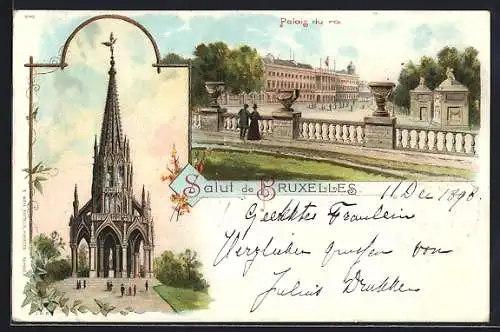 Palais du roi
Salut de BRUXELLES
11 Dec 1898.
Geehrtes Fräulein
Herzlichen grüssen von
Julius